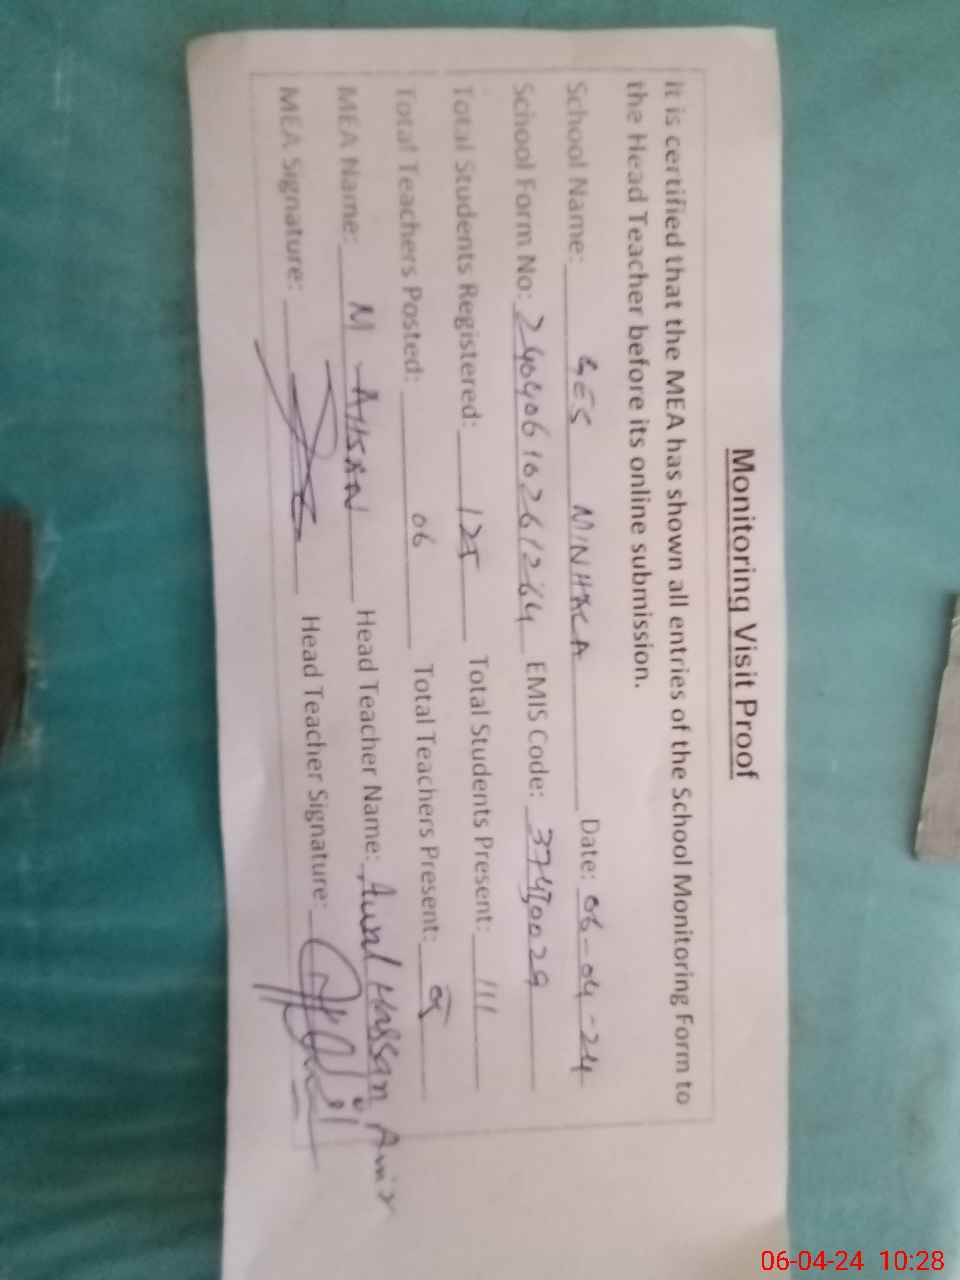 Monitoring Visit Proof
It is certified that the MEA has shown all entries of the School Monitoring Form to
the Head Teacher before its online submission.
School Name: GES MINHALA Date: 06-04-24
School Form No: 24040616261264 EMIS Code: 37410029
Total Students Registered: 125 Total Students Present: 111
Total Teachers Posted: 06 Total Teachers Present: 05
MEA Name: M AHSAN Head Teacher Name: Hassan Amir
MEA Signature: Head Teacher Signature:
06-04-24 10:28